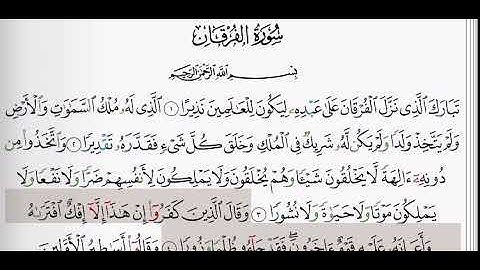 سُورَةُ الفُرْقَان
بِسْمِ اللَّهِ الرَّحْمَٰنِ الرَّحِيمِ
تَبَارَكَ ٱلَّذِى نَزَّلَ ٱلْفُرْقَانَ عَلَىٰ عَبْدِهِۦ لِيَكُونَ لِلْعَٰلَمِينَ نَذِيرًا ١ ٱلَّذِى لَهُۥ مُلْكُ ٱلسَّمَٰوَٰتِ وَٱلْأَرْضِ
وَلَمْ يَتَّخِذْ وَلَدًا وَلَمْ يَكُن لَّهُۥ شَرِيكٌ فِى ٱلْمُلْكِ وَخَلَقَ كُلَّ شَىْءٍ فَقَدَّرَهُۥ تَقْدِيرًا ٢ وَٱتَّخَذُوا۟ مِن
دُونِهِۦٓ ءَالِهَةً لَّا يَخْلُقُونَ شَيْـًٔا وَهُمْ يُخْلَقُونَ وَلَا يَمْلِكُونَ لِأَنفُسِهِمْ ضَرًّا وَلَا نَفْعًا وَلَا
يَمْلِكُونَ مَوْتًا وَلَا حَيَوٰةً وَلَا نُشُورًا ٣ وَقَالَ ٱلَّذِينَ كَفَرُوٓا۟ إِنْ هَٰذَآ إِلَّآ إِفْكٌ ٱفْتَرَىٰهُ
وَأَعَانَهُۥ عَلَيْهِ قَوْمٌ ءَاخَرُونَ ۖ فَقَدْ جَآءُو ظُلْمًا وَزُورًا ٤ وَقَالُوٓا۟ أَسَٰطِيرُ ٱلْأَوَّلِينَ